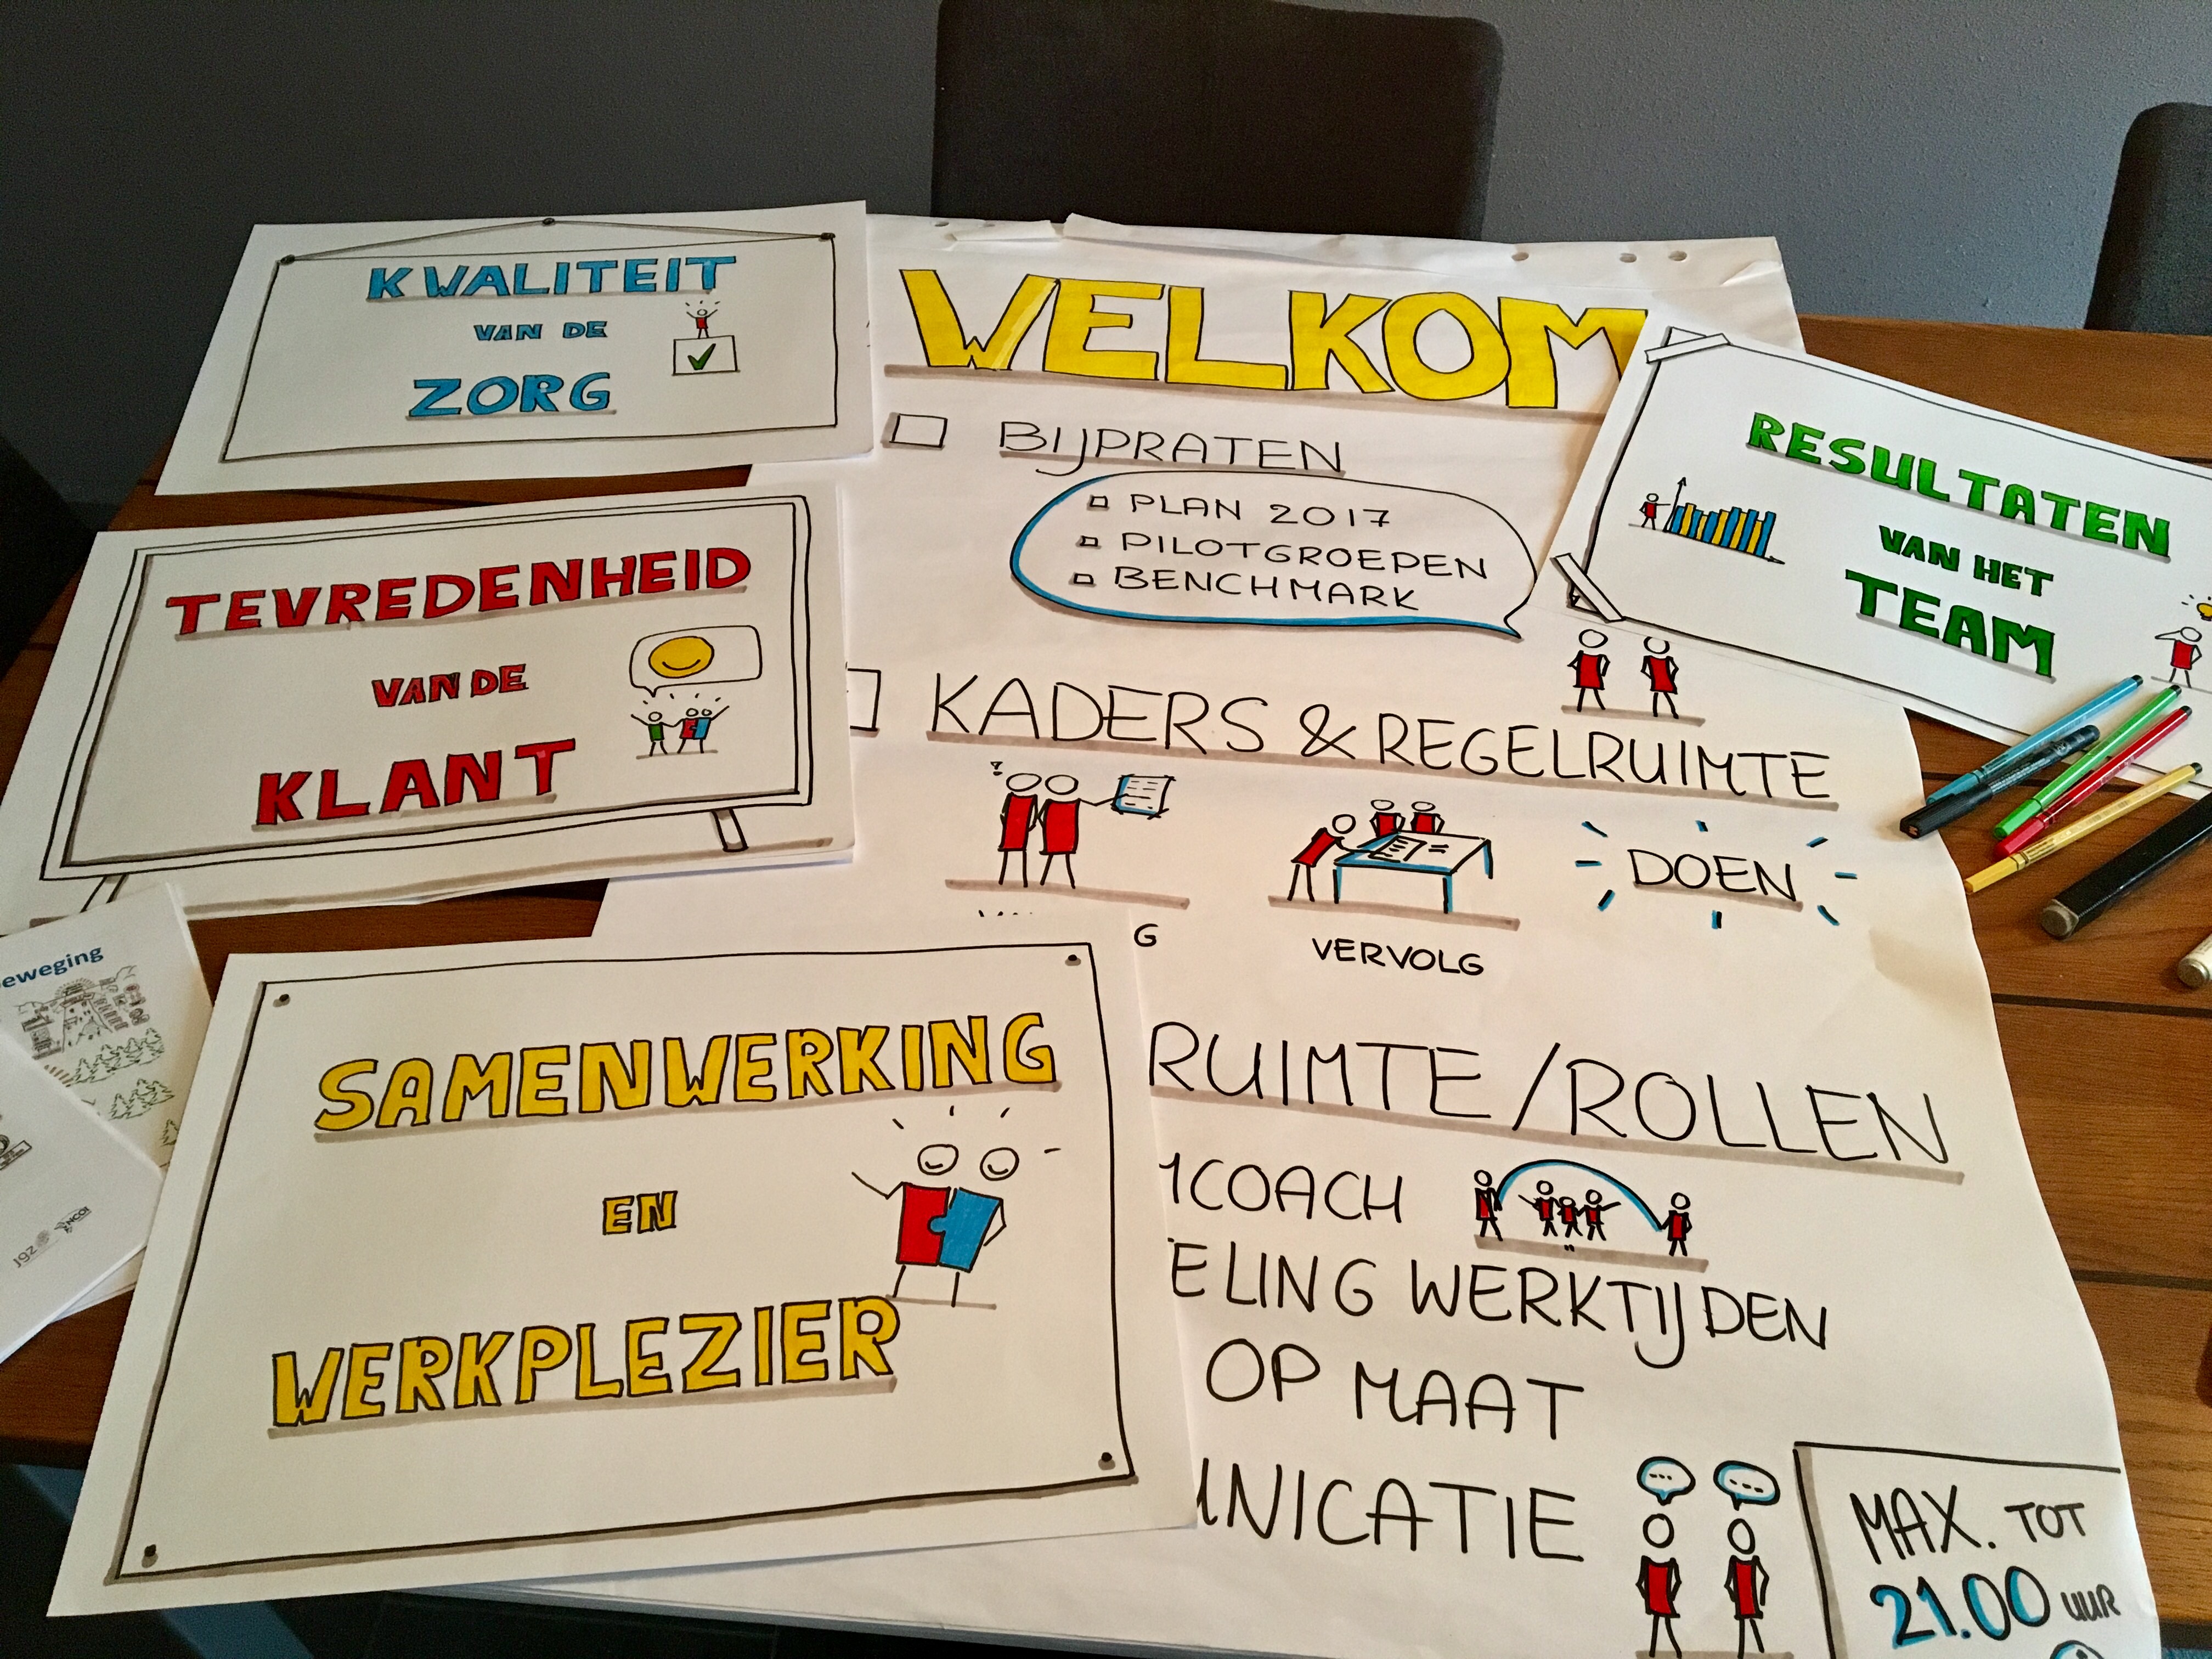 KWALITEIT
VAN DE
ZORG
TEVREDENHEID
VAN DE
KLANT
SAMENWERKING
EN
WERKPLEZIER
WELKOM
BIJPRATEN
PLAN 2017
PILOTGROEPEN
BENCHMARK
KADERS & REGELRUIMTE
DOEN
G
VERVOLG
RUIMTE/ROLLEN
COACH
ELING WERKTIJDEN
OP MAAT
NICATIE
MAX. TOT
21.00 UUR
RESULTATEN
VAN HET
TEAM
eweging
JGZ
NCOI